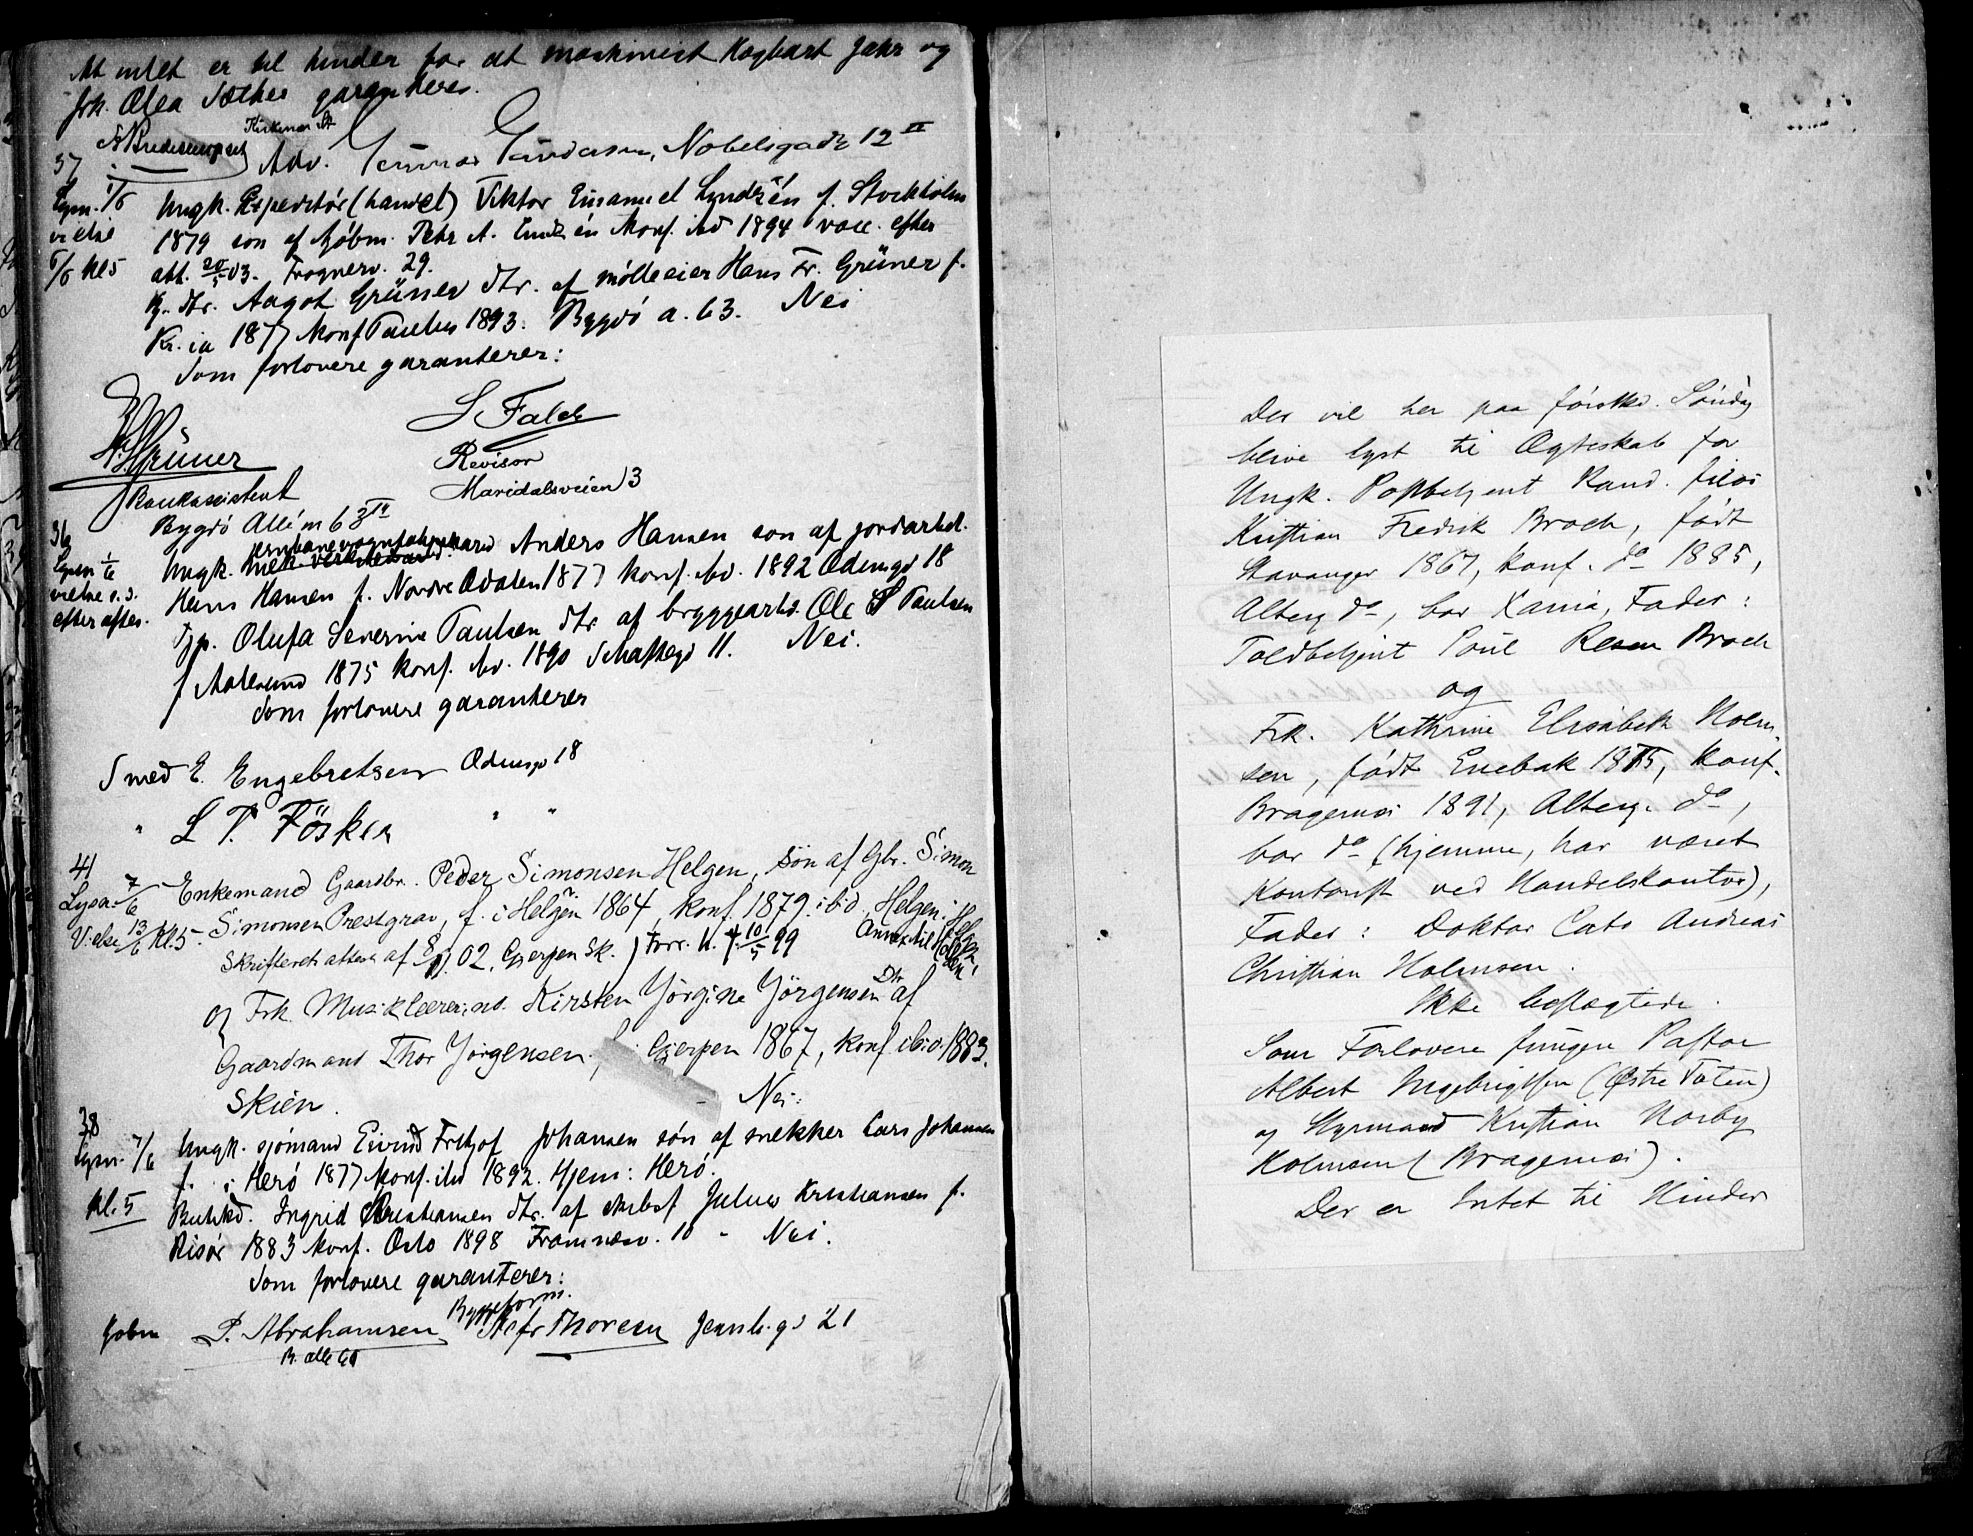 At intet er til hinder for at maskinist Hagbart Jahr og
frk. Olea Sæther garanteres.
Adv. Gunnar Gundersen, Nobelsgade 12 II
37
Lysn. 1/6
vielse
6/6 kl 5
Ungk. Expeditør (handel) Viktor Emanuel Lyndzén f. Stockholm
1879 søn af Kjøbm. Petr A. konf. ibd 1894 vacc. efter
att. 20/5 03. Frognerv. 29.
Pg. dtr. Aagot Grüner dtr. af mølleeier Hans Fr. Grüner f.
Kr.ia 1877 konf Paulus 1893. Bygdö a. 63. Nei
Som forlovere garanterer:
Grüner
Bankassistent
Bygdö Allé n 63 IV
S Falck
Revisor
Maridalsveien 3
36
Lysn 1/6
vielse s. d.
efter aftes.
Ungk. jernbanevognfabrikarb Anders Hansen søn af jordarbd.
Hans Hansen f. Nordre Odalen 1877 konf. ibd. 1892 Odinsgd 18
Tjp. Olufa Severine Paulsen dtr af bryggearb. Ole S Paulsen
f Aalesund 1875 konf. ibd. 1890 Schaftegd 11. Nei.
Som forlovere garanterer
Smed E. Engebretsen Odinsgd 18
" L P. Fösker " "
41
Lysn. 7/6
Vielse 13/6 Kl. 5.
Enkemand Gaardbr. Peder Simonsen Helgen, søn af Gbr. Simon
Simonsen Prestgrav, f. i Helgen 1864, konf. 1879 ibid. Helgen.
Annex til Holden
Skifteret attest af 02. Gjerpen Sk. Forr. h. † 10/5 99
og Frk. Musiklærerind. Kirsten Jörgine Jörgensen Dtr. af
Gaardmand Thor Jörgensen, Gjerpen 1867, konf ibid. 1883.
Skien. – Nei.
38
Lysn. 7/6
kl. 5
Ungk. sjømand Eivind Fritjof Johansen søn af snekker Lars Johansen
f. i Herö 1877 konf. ibd 1892. Hjem: Herö.
Butikd. Ingrid Christiansen dtr. af skibsf Julius Kristiansen f.
Risør 1883 konf. Oslo 1898 Framnæsv. 10 - Nei.
Som forlovere garanterer:
Kjøbm P. Abrahamsen
B. alle 60
Byggeform.
Petr Thoresen Jernb. gd 21
Der vil her paa førstkd. Söndag
blive lyst til Ægteskab for
Ungk. Postbetjent Kand. filos
Kristian Fredrik Broch, født
Stavanger 1867, konf. do 1885,
Alterg do, bor Xania, Fader:
Toldbetjent Poul Resen Broch
og
Frk. Kathrine Elisabeth Holm-
sen, født Enebak 1875, konf.
Bragernæs 1891, Alterg. do,
bor do (hjemme, har været
Kontorist ved Handelskontor),
Fader: Doktor Cato Andreas
Christian Holmsen.
Ikke beslægtede.
Som Forlovere fungere Pastor
Albert Ingebrigtsen (Østre Toten)
og Styrmand Kristian Norby
Holmsen (Bragernæs).
Der er Intet til Hinder